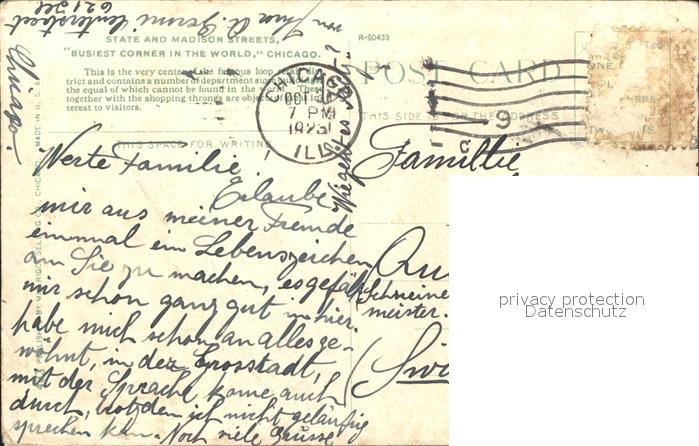 STATE AND MADISON STREETS,
"BUSIEST CORNER IN THE WORLD," CHICAGO.
This is the very center of the famous loop retail district and contains a number of department stores
the equal of which cannot be found in the world. These
together with the shopping throngs are objects of great interest to visitors.
R-60433
POST CARD
THIS SIDE IS FOR THE ADDRESS
THIS SPACE FOR WRITING
CHICAGO
OCT
7 PM
1923
ILL.
Chicago.
Werte Familie!
Erlaube
mir aus meiner Fremde
einmmal ein Lebenszeichen
an Sie zu machen, es gefällt
mir schon ganz gut in hier.
habe mich schon an alles ge-
wohnt, in der Grosstadt,
mit der Sprache kome auch
durch, trotzden ich nicht geläufig
sprechen kann. Noch viele Grüsse
von
Wie geht es
Familie
Schreiner
meister.
privacy protection
Datenschutz